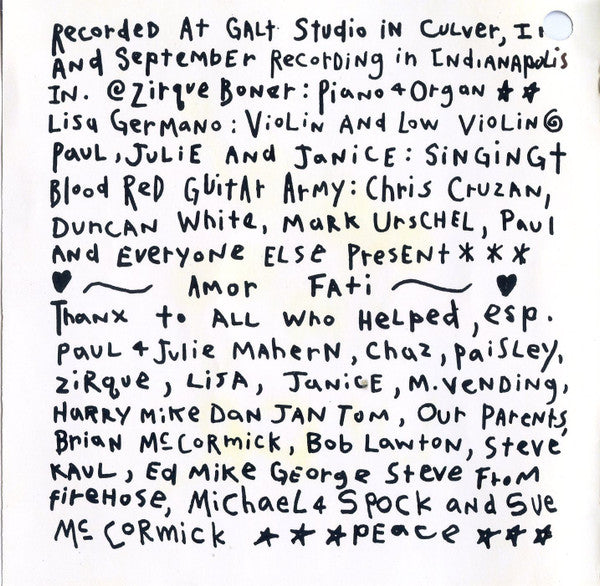 Recorded At Galt Studio in Culver, I
And September Recording in Indianapolis
IN. @ Zirque Boner: Piano + Organ ★ ★
Lisa Germano: Violin And Low Violin
Paul, Julie And Janice: Singing †
Blood Red Guitar Army: Chris Cruzan,
Duncan White, Mark Urschel, Paul
And Everyone Else Present * * *
♥ ~ Amor Fati ~ ♥
Thanx to All Who Helped, esp.
Paul + Julie Mahern, Chaz, Paisley,
Zirque, Lisa, Janice, M. Vending,
Harry Mike Dan Jan Tom, Our Parents,
Brian McCormick, Bob Lawton, Steve
Kaul, Ed Mike George Steve From
fireHose, Michael & Spock and Sue
McCormick ★ ★ ★ Peace ★ ★ ★